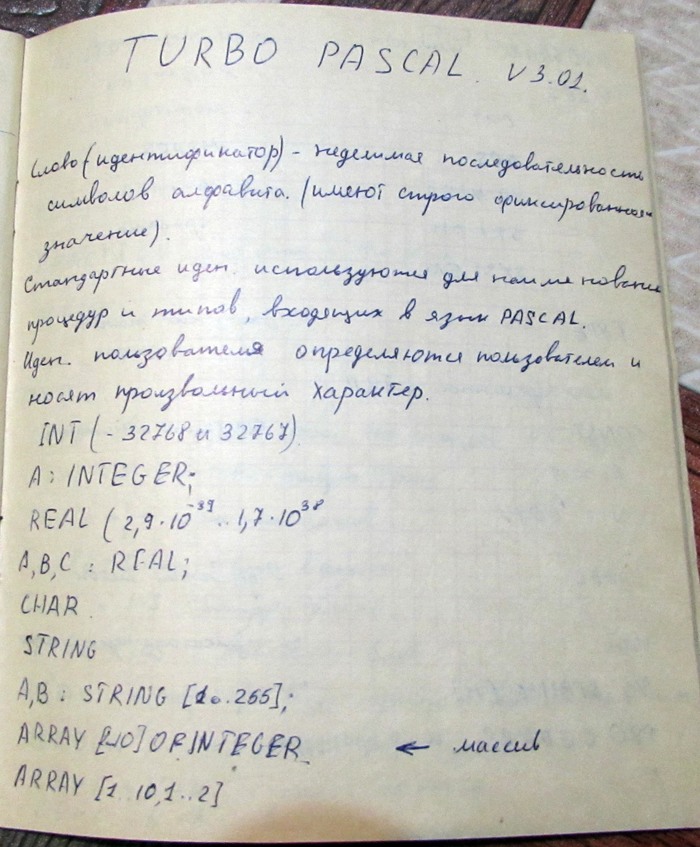 TURBO PASCAL. V 3.01.
Слово (идентификатор) - неделимая последовательность
символов алфавита. (имеют строго фиксированное
значение).
Стандартные иден. используются для наименования
процедур и типов, входящих в язык PASCAL.
Иден. пользователя определяются пользователем и
носят произвольный характер.
INT (- 32768 и 32767)
A : INTEGER;
REAL ( 2,9·10⁻³⁹ .. 1,7·10³⁸
A,B,C : REAL;
CHAR
STRING
A,B : STRING [1..255];
ARRAY [1..10] OF INTEGER ← массив
ARRAY [1..10,1..2]